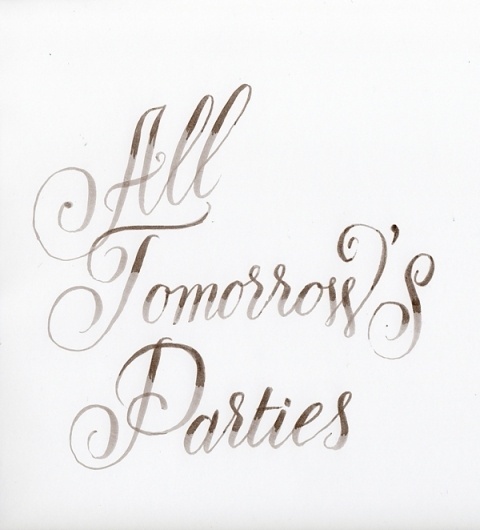 All
Tomorrow's
Parties